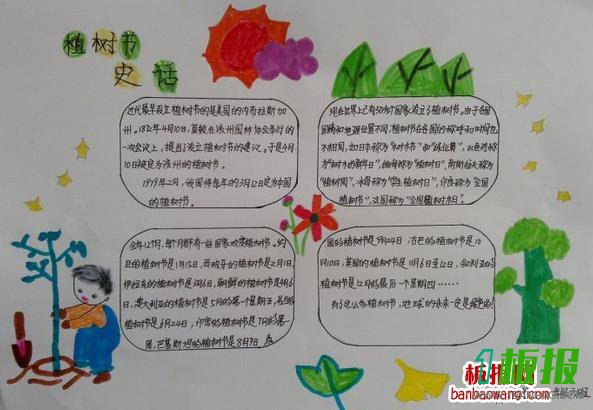 植树节
史话
近代最早设立植树节的是美国的内布拉斯加
州。1872年4月10日,莫顿在该州园林协会举行的
一次会议上,提出了设立植树节的建议。于是4月
10日被定为该州的植树节。
1979年2月,我国将每年的3月12日定为中国
的植树节。
现在世界上已有50多个国家设立了植树节。由于各国
国情和地理位置不同,植树节在各国的称呼和时间也
不相同,如日本称为
称为"树木的新年日",缅甸称为"植树日",南斯拉夫称为
"植树周",冰岛称为"学生植树日",印度称为"全国
植树节",法国称为"全国植树日"。
全年12个月,每个月都有一些国家欢度植树节。约
旦的植树节是1月15日,西班牙的植树节是2月1日,
的植树节是3月6日,朝鲜的植树节是4月6
日,澳大利亚的植树节是5月的第一个星期五,芬兰的
植树节是6月24日,印度的植树节是7月的第一
周,巴基斯坦的植树节是8月9日 泰
国的植树节是9月24日,古巴的植树节是10
月10日,英国的植树节是11月6日至12日,叙利亚的
植树节是12月的最后一个星期四……
有了这么多植树节,地球的未来一定是绿色的!
板报网
板报
banbaowang.com